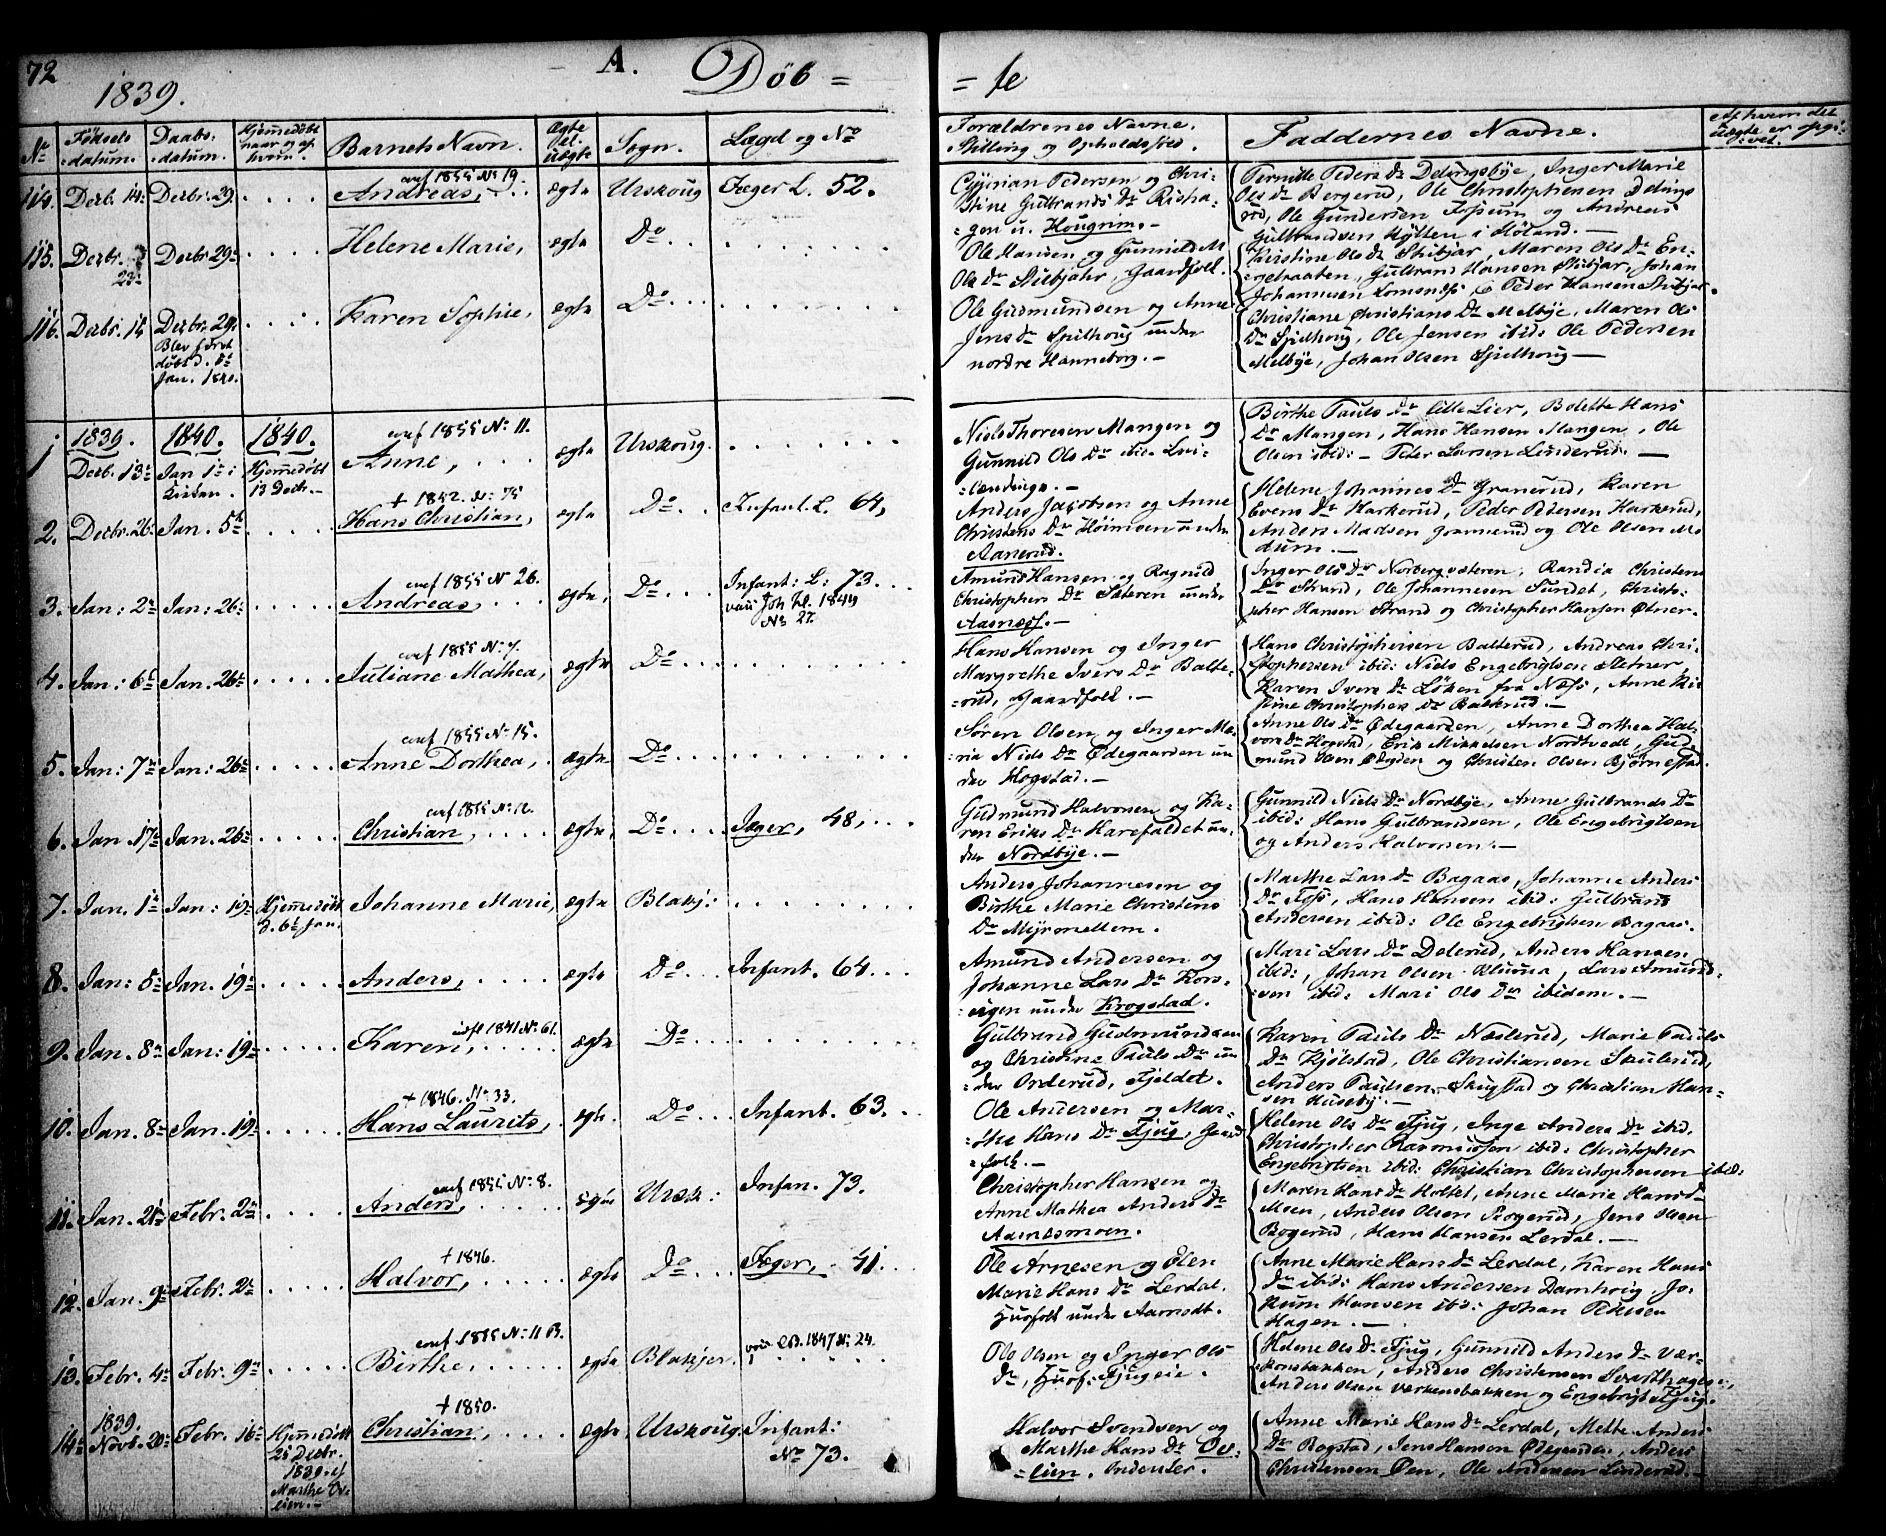 72
1839.
A. Døb = = te
No | Fødsels datum. | Daabs: datum. | Hjemmedøbt naar og af hvem. | Barnets Navn. | Ægte vel. uægte | Sogn. | Lægd og No | Forældrenes Navne, Stilling og Opholdssted. | Faddernes Navne. | Af hvem det uægte er opgivet.
114. Decbr. 14: Decbr. 29. . . . . conf 1855 No 19. Andreas, ægte Urskoug Jæger L. 52.
Cyprian Pedersen og Chri-
stine Gulbrands Dr Risha-
gen u. Hougrim. -
Pernille Peders Dr Delingsbye, Inger Marie
Ols Dr Bergerud, Ole Christophersen Delings
rud, Ole Gundersen Fossum og Andreas
Gulbrandsen Hylten i Høland. -
115. Decbr. 23 Decbr. 29 . . . . Helene Marie, ægte Do . .
Ole Hansen og Gunnild M
Ols Dr Skibjahr, Gaardfolk.
Christine Ols Dr Skibjar, Maren Ols Dr En-
gebraaten, Gulbrand Hansen Skibjar, Johan
Johannesen Lomsnæss & Peder Hansen Skibjar.
116. Decbr. 14 Decbr. 29. . . . . Karen Sophie, ægte Do . . . .
Blev først
døbt d.
Jan. 1840.
Ole Gudmundsen og Anne
Jens Dr Spilhoug under
nordre Hanneborg. -
Christiane Christians Dr Melbye, Maren Ols
Dr Spilhoug, Ole Jensen ibid: Ole Pedersen
Melbye, Johan Olsen Spilhoug -
1839. 1840. 1840.
1 Decb. 13 Jan 1 i Kirken. Hjemmedøbt 13 Decbr. - conf 1855 No 11. Anne, . . . ægte Urskoug. . . . . .
Niels Thoresen Mangen og
Gunnild Ols Dr
Birthe Pauls Dr Lille Lier, Bolette Hans
Dr Mangen, Hans Hansen Mangen, Ole
Olsen ibid: - Peder Larsen Linderud. -
2. Decbr. 26 Jan. 5 . . . . † 1852. No 75 Hans Christian, ægte Do . . Infant. L. 64,
Anders Jacobsen og Anne
Christens Dr Høimoen under
Aanerud.
Helene Johannes Dr Granerud, Karen
Evens Dr Harkerud, Peder Pedersen Harkerud,
Anders Madsen Granerud og Ole Olsen Mo
dum. -
3. Jan: 2 Jan: 26 . . . . . conf 1855 No 26. Andreas, . . . ægte, Do . . Infant: L: 73. . . .
No 27.
Amund Hansen og Ragnild
Christophers Dr Sæteren under
Aasnæss. -
Inger Ols Dr Norbergsæteren, Randia Christens
Dr Strand, Ole Johannesen Sundet, Christo-
pher Hansen Strand og Christopher Hansen Østner.
4. Jan: 6 Jan. 26 . . . . . conf 1855 No 7. Juliane Mathea, ægte Do . . . . . .
Hans Hansen og Inger
Margrethe Ivers Dr Balte-
rud, Gaardfolk. -
Hans Christophersen Balterud, Andreas Chri-
stophersen ibid: Niels Engebrigtsen Stetner,
Karen Ivers Dr Løken fra Næss, Anne Kir
stine Christophers Dr Balterud. -
5. Jan: 7 Jan: 26 . . . . . conf 1855 No 15. Anne Dorthea, ægte Do . . . . . .
Søren Olsen og Inger Ma-
ria Niels Dr Ødegaarden un
der Hogstad. -
Anne Ols Dr Ødegaarden, Anne Dorthea Hal-
vors Dr Hogstad, Erik Mikkelsen Nordtvedt, Gud-
mund Olsen Øgden og Christen Olsen Bjørnestad.
6. Jan. 17 Jan. 26 . . . . conf 1855 No 12. Christian, . . . . ægte, Do . . . Jæger, 48, . . .
Gudmund Halvorsen og Ka-
ren Eriks Dr Harefaldet un.
der Nordbye. -
Gunnild Niels Dr Nordbye, Anne Gulbrands Dr
ibid: Hans Gulbrandsen, Ole Engebrigtsen
og Anders Halvorsen. -
7. Jan. 1 Jan: 19 Hjemmedøbt d. 6 Jan. Johanne Marie, ægte Blakj: . . . . .
Anders Johannesen og
Birthe Marie Christens
Dr Myrmellem.
Marthe Lars Dr Bagaas, Johanne Anders
Dr Foss, Hans Hansen ibid: Gulbrand
Andersen ibid: Ole Engebrigtsen Bagaas.
8. Jan: 5 Jan. 19 . . . . . Anders, . . . . ægte Do . . . Infant. 64. . . .
Amund Andersen og
Johanne Lars Dr Kors-
vigen under Krogstad.
Mari Lars Dr Delerud, Anders Hansen
ibid:, Johan Olsen Kluma, Lars Amund-
sen ibid: Mari Ols Dr ibidem. -
9. Jan. 8 Jan: 19 . . . . . indf 1841 No 61. Karen, . . . . ægte Do . . . . .
Gulbrand Gudmundsen
og Christine Pauls Dr un
der Orderud, Fjeldet.
Karen Pauls Dr Næslerud, Marie Pauls
Dr Kjølstad, Ole Christiansen Skulerud,
Anders Paulsen Skugstad og Christian Han-
sen Huseby. -
10. Jan. 8 Jan. 19 . . . . . † 1846. No 33. Hans Laurits, . ægte. Do . . . Infant. 63. . .
Ole Andersen og Mar-
the Hans Dr Fjug, Gaard
folk. -
Helene Ols Dr Fjug, Inge Anders Dr ibid.
Christopher Rasmussen ibid: Christopher
Engebrigtsen ibid: Christian Christophersen ibid:
11. Jan. 21 Febr. 2 . . . . conf 1855 No 8. Anders, . . . . . ægte Ursk: Infan. 73.
Christopher Hansen og
Anne Mathea Anders Dr
Aarnæsmoen.
Maren Hans Dr Holtet, Anne Marie Hans D
Moen, Anders Olsen Bogerud, Jens Olsen
Bogerud, Hans Hansen Lerdal. -
12. Jan. 9 Febr. 2 . . . . † 1846. Halvor, . . . . . ægte Do . . . Jæger, 41. . . .
Ole Arnesen og Elen
Marie Hans Dr Lerdal,
Huusfolk under Aamodt.
Anne Marie Hans Dr Lerdal, Karen Hans
Dr ibid: Hans Andersen Damhoug, Jo-
kum Hansen ibid: Johan Petersen
Hagen. -
13. Febr. 4 Febr. 9 . . . . . conf 1855 No 11 B. Birthe, . . . . . ægte Blakjer. 1847 No 24.
Ole Olsen og Inger Ols
Dr, Huusf: Fjugeie.
Helene Ols Dr Fjug, Gunnild Anders Dr Vær-
kensbakken, Anders Christensen Svarthagen,
Anders Olsen Værkensbakken og Engebrigt Fjug.
14 1839. Novbr. 20 Febr. 16 Hjemmedøbt 25 Decbr. 1839 af Marthe Øv- eien. - † 1850. Christian, . . . . ægte Urskoug Infant: No 73.
Halvor Svendsen og
Marthe Hans Dr Øv-
eien. Inderster.
Anne Marie Hans Dr Lerdal, Mette Anders
Dr Bogstad, Jens Hansen Ødegaarden, Anders
Christensen Øien, Ole Andersen Linderud. -